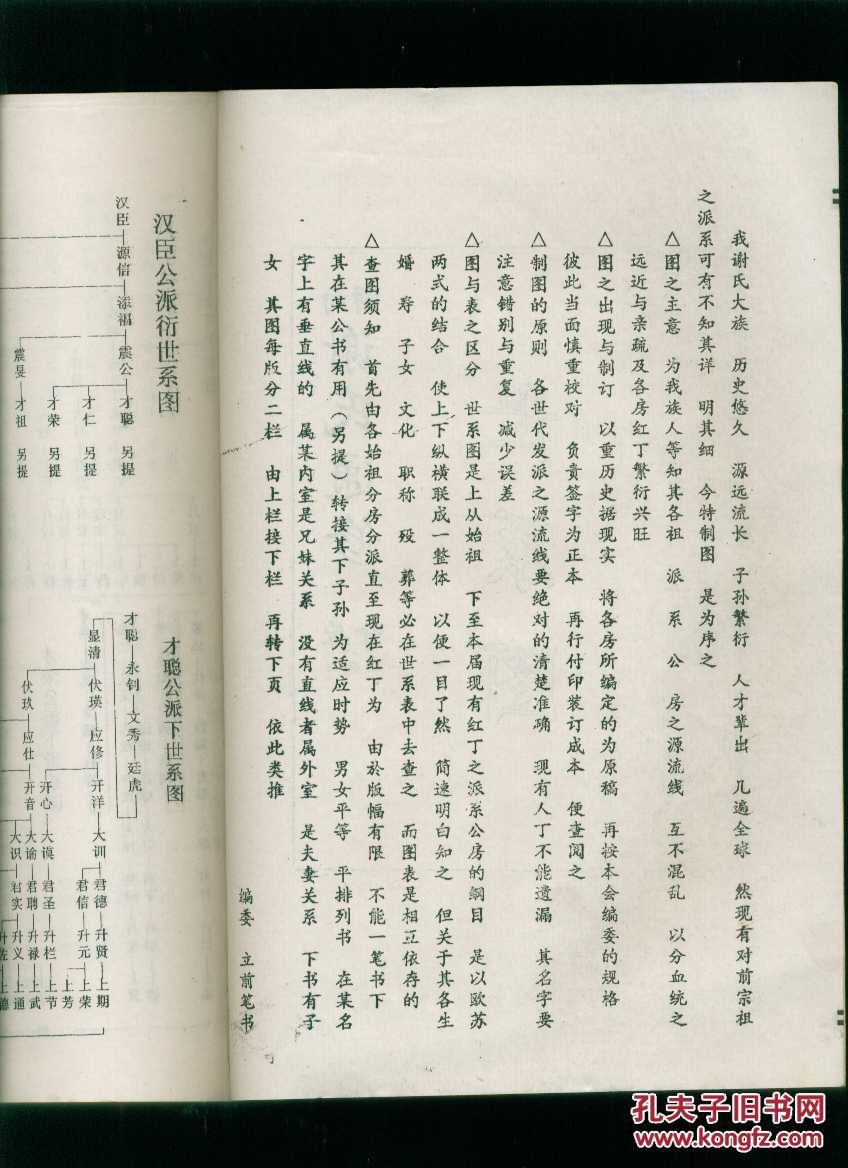 我谢氏大族 历史悠久 源远流长 子孙繁衍 人才辈出 几遍全球 然现有对前宗祖
之派系可有不知其详 明其细 今特制图 是为序之
△图之主意 为我族人等知其各祖 派 系 公 房之源流线 互不混乱 以分血统之
远近与亲疏及各房红丁繁衍兴旺
△图之出现与制订 以重历史据现实 将各房所编定的为原稿 再按本会编委的规格
彼此当面慎重校对 负责签字为正本 再行付印装订成本 便查阅之
△制图的原则 各世代发派之源流线要绝对的清楚准确 现有人丁不能遗漏 其名字要
注意错别与重复 减少误差
△图与表之区分 世系图是上从始祖 下至本届现有红丁之派系公房的纲目 是以欧苏
两式的结合 使上下纵横联成一整体 以便一目了然 简速明白知之 但关于其各生
婚 寿 子女 文化 职称 殁 葬等必在世系表中去查之 而图表是相互依存的
△查图须知 首先由各始祖分房分派直至现在红丁为 由於版幅有限 不能一笔书下
其在某公书有用(另提)转接其下子孙 为适应时势 男女平等 平排列书 在某名
字上有垂直线的 属某内室是兄妹关系 没有直线者属外室 是夫妻关系 下书有子
女 其图每版分二栏 由上栏接下栏 再转下页 依此类推
编委 立前笔书
汉臣公派衍世系图
汉臣—源信—添福—震公—才聪 另提
才仁 另提
才荣 另提
震旻—才祖 另提
才聪公派下世系图
才聪—永钊—文秀—廷虎
显清—伏瑛—应修—开洋—大训—君德—升贤—上期
君信—升元—上荣
上芳
开心—大谟—君圣—升栏—上节
伏玖—应仕—开音—大谕—君聘—升禄—上武
大识—君实—升义—上通
升佐—上德
孔夫子旧书网
www.kongfz.com